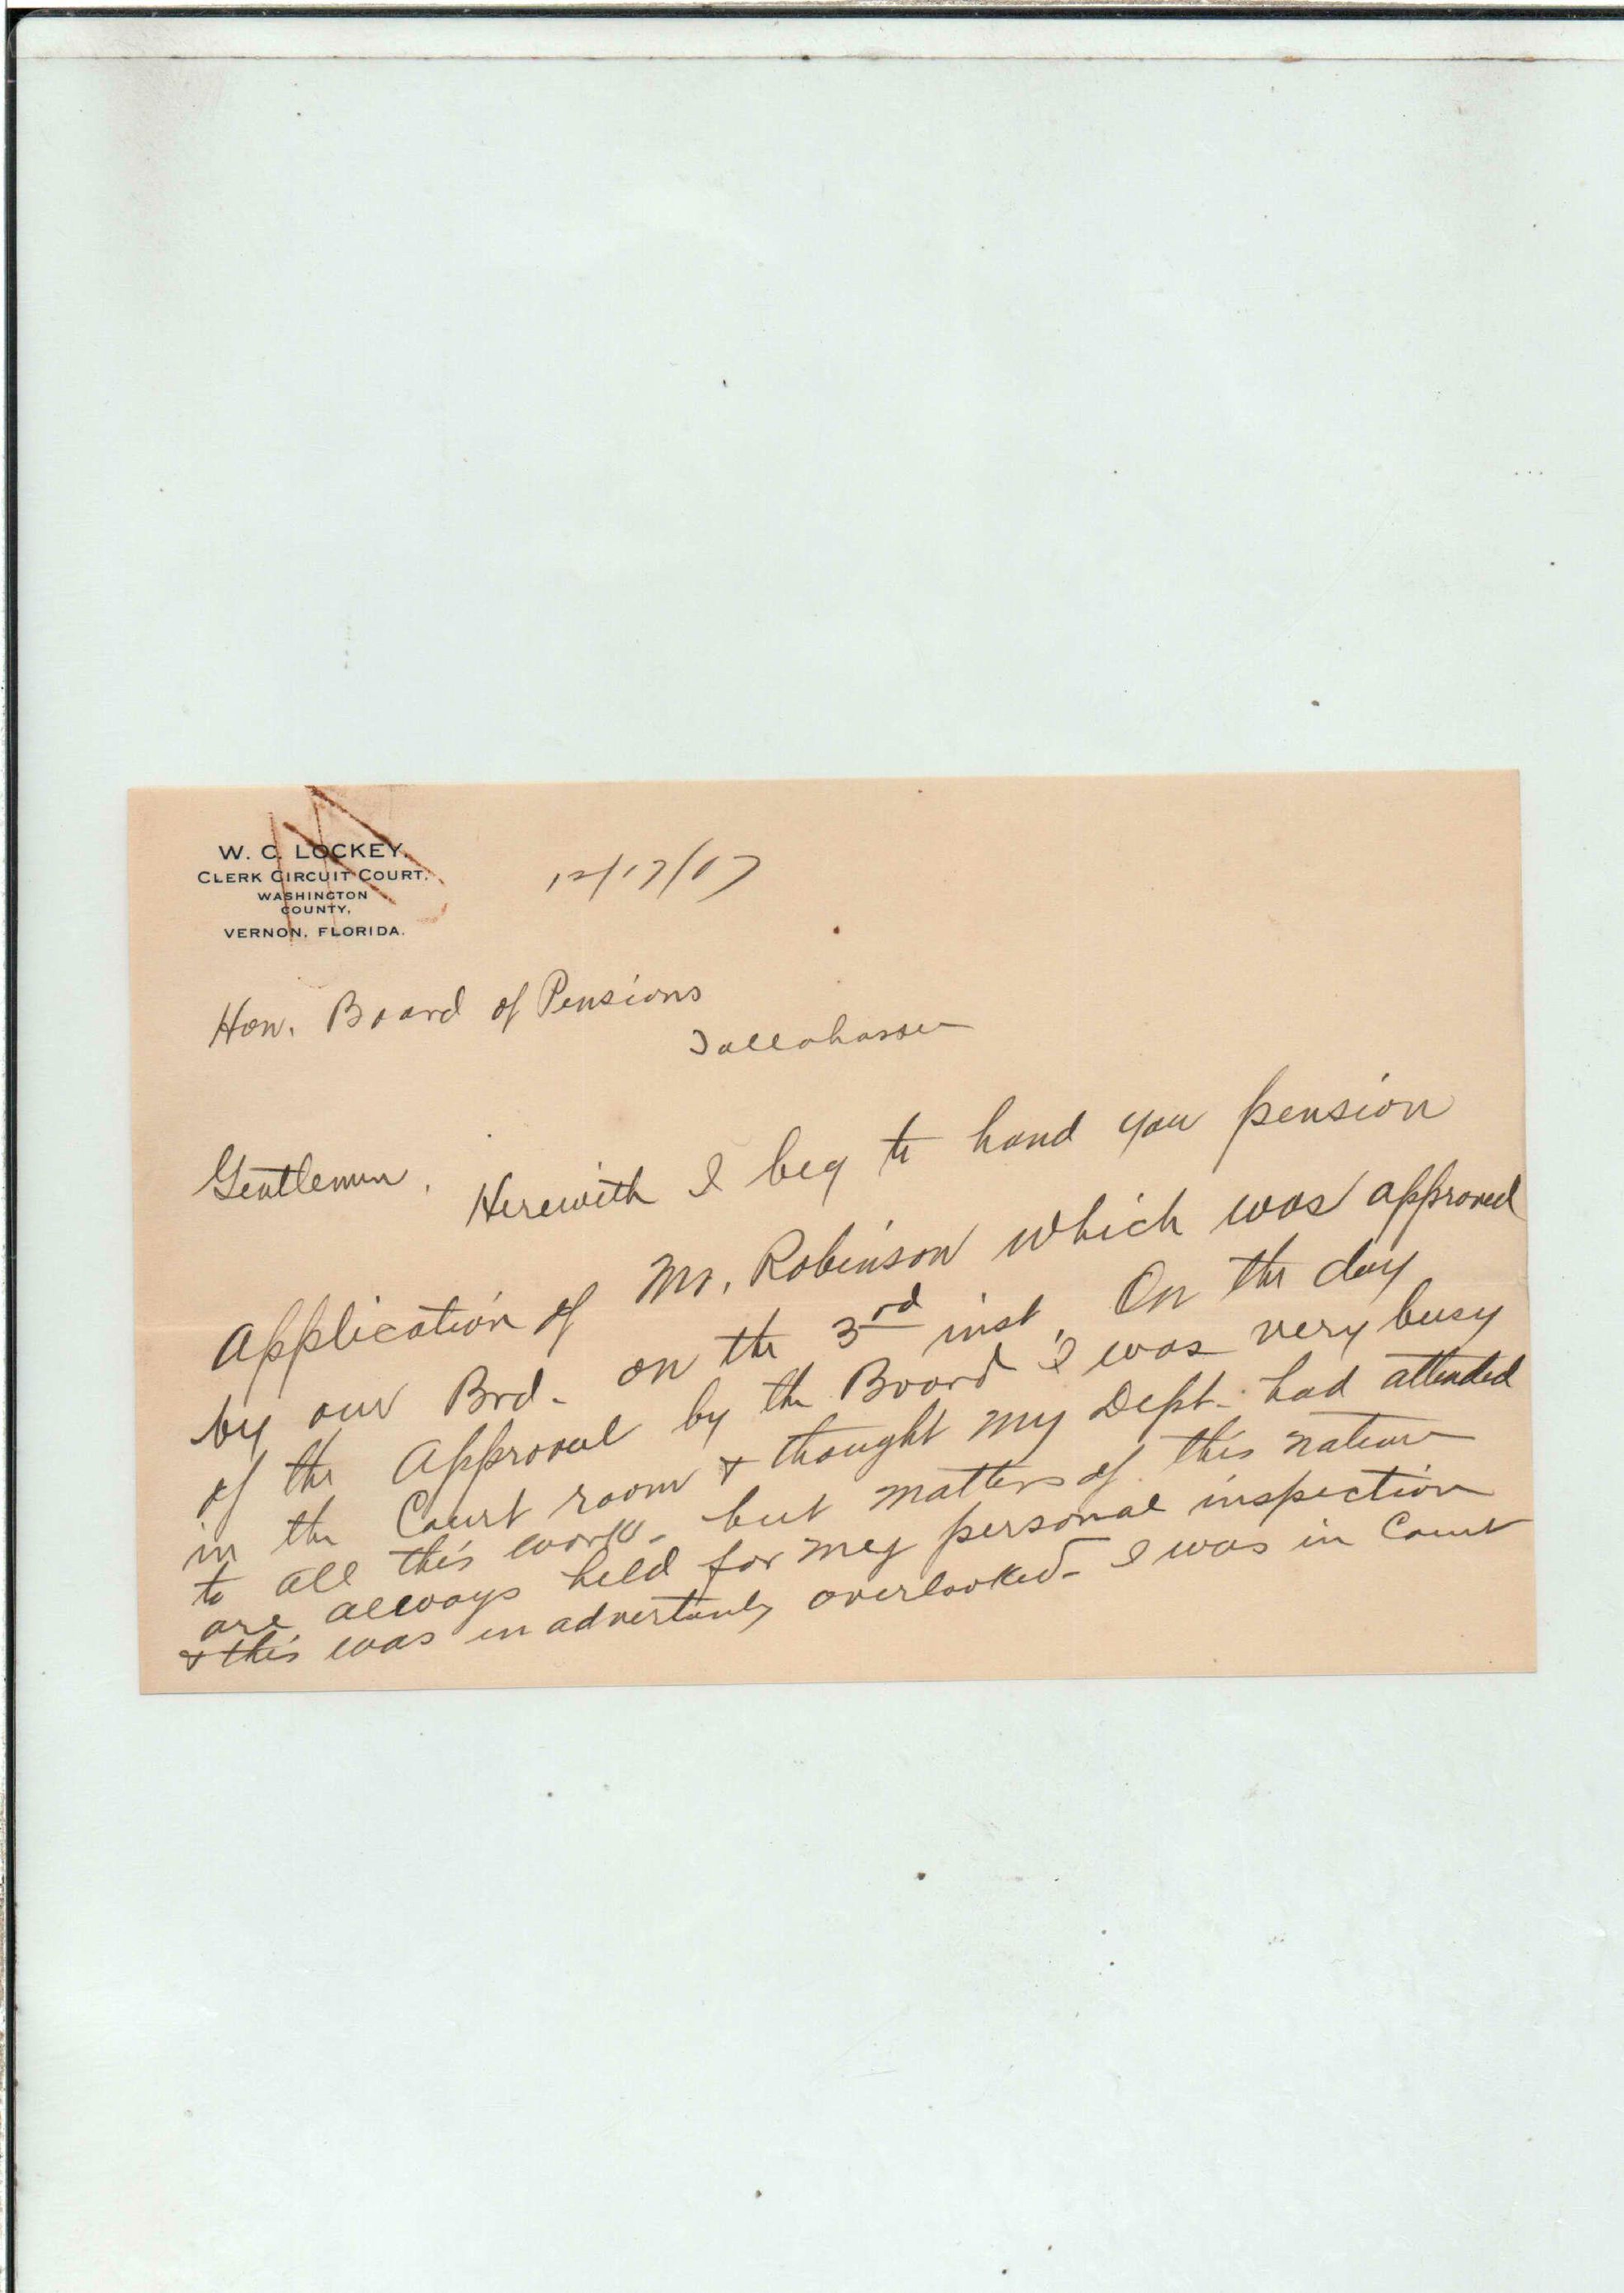 W. C. LOCKEY,
CLERK CIRCUIT COURT,
WASHINGTON
COUNTY,
VERNON, FLORIDA.
12/17/07
Hon. Board of Pensions
Tallahassee
Gentlemen. Herewith I beg to hand you pension
Application of Mr. Robinson which was approved
by our Brd. on the 3rd inst. On the day
of the Approval by the Board I was very busy
in the Court room & thought my Dept. had attended
to all this work - but matters of this nature
are always held for my personal inspection
& this was inadvertantly overlooked - I was in Court